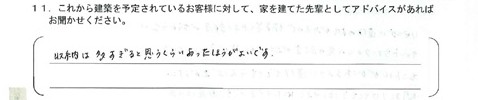 11．これから建築を予定されているお客様に対して、家を建てた先輩としてアドバイスがあれば
お聞かせください。
収納は多すぎると思うくらいあったほうがよいです。